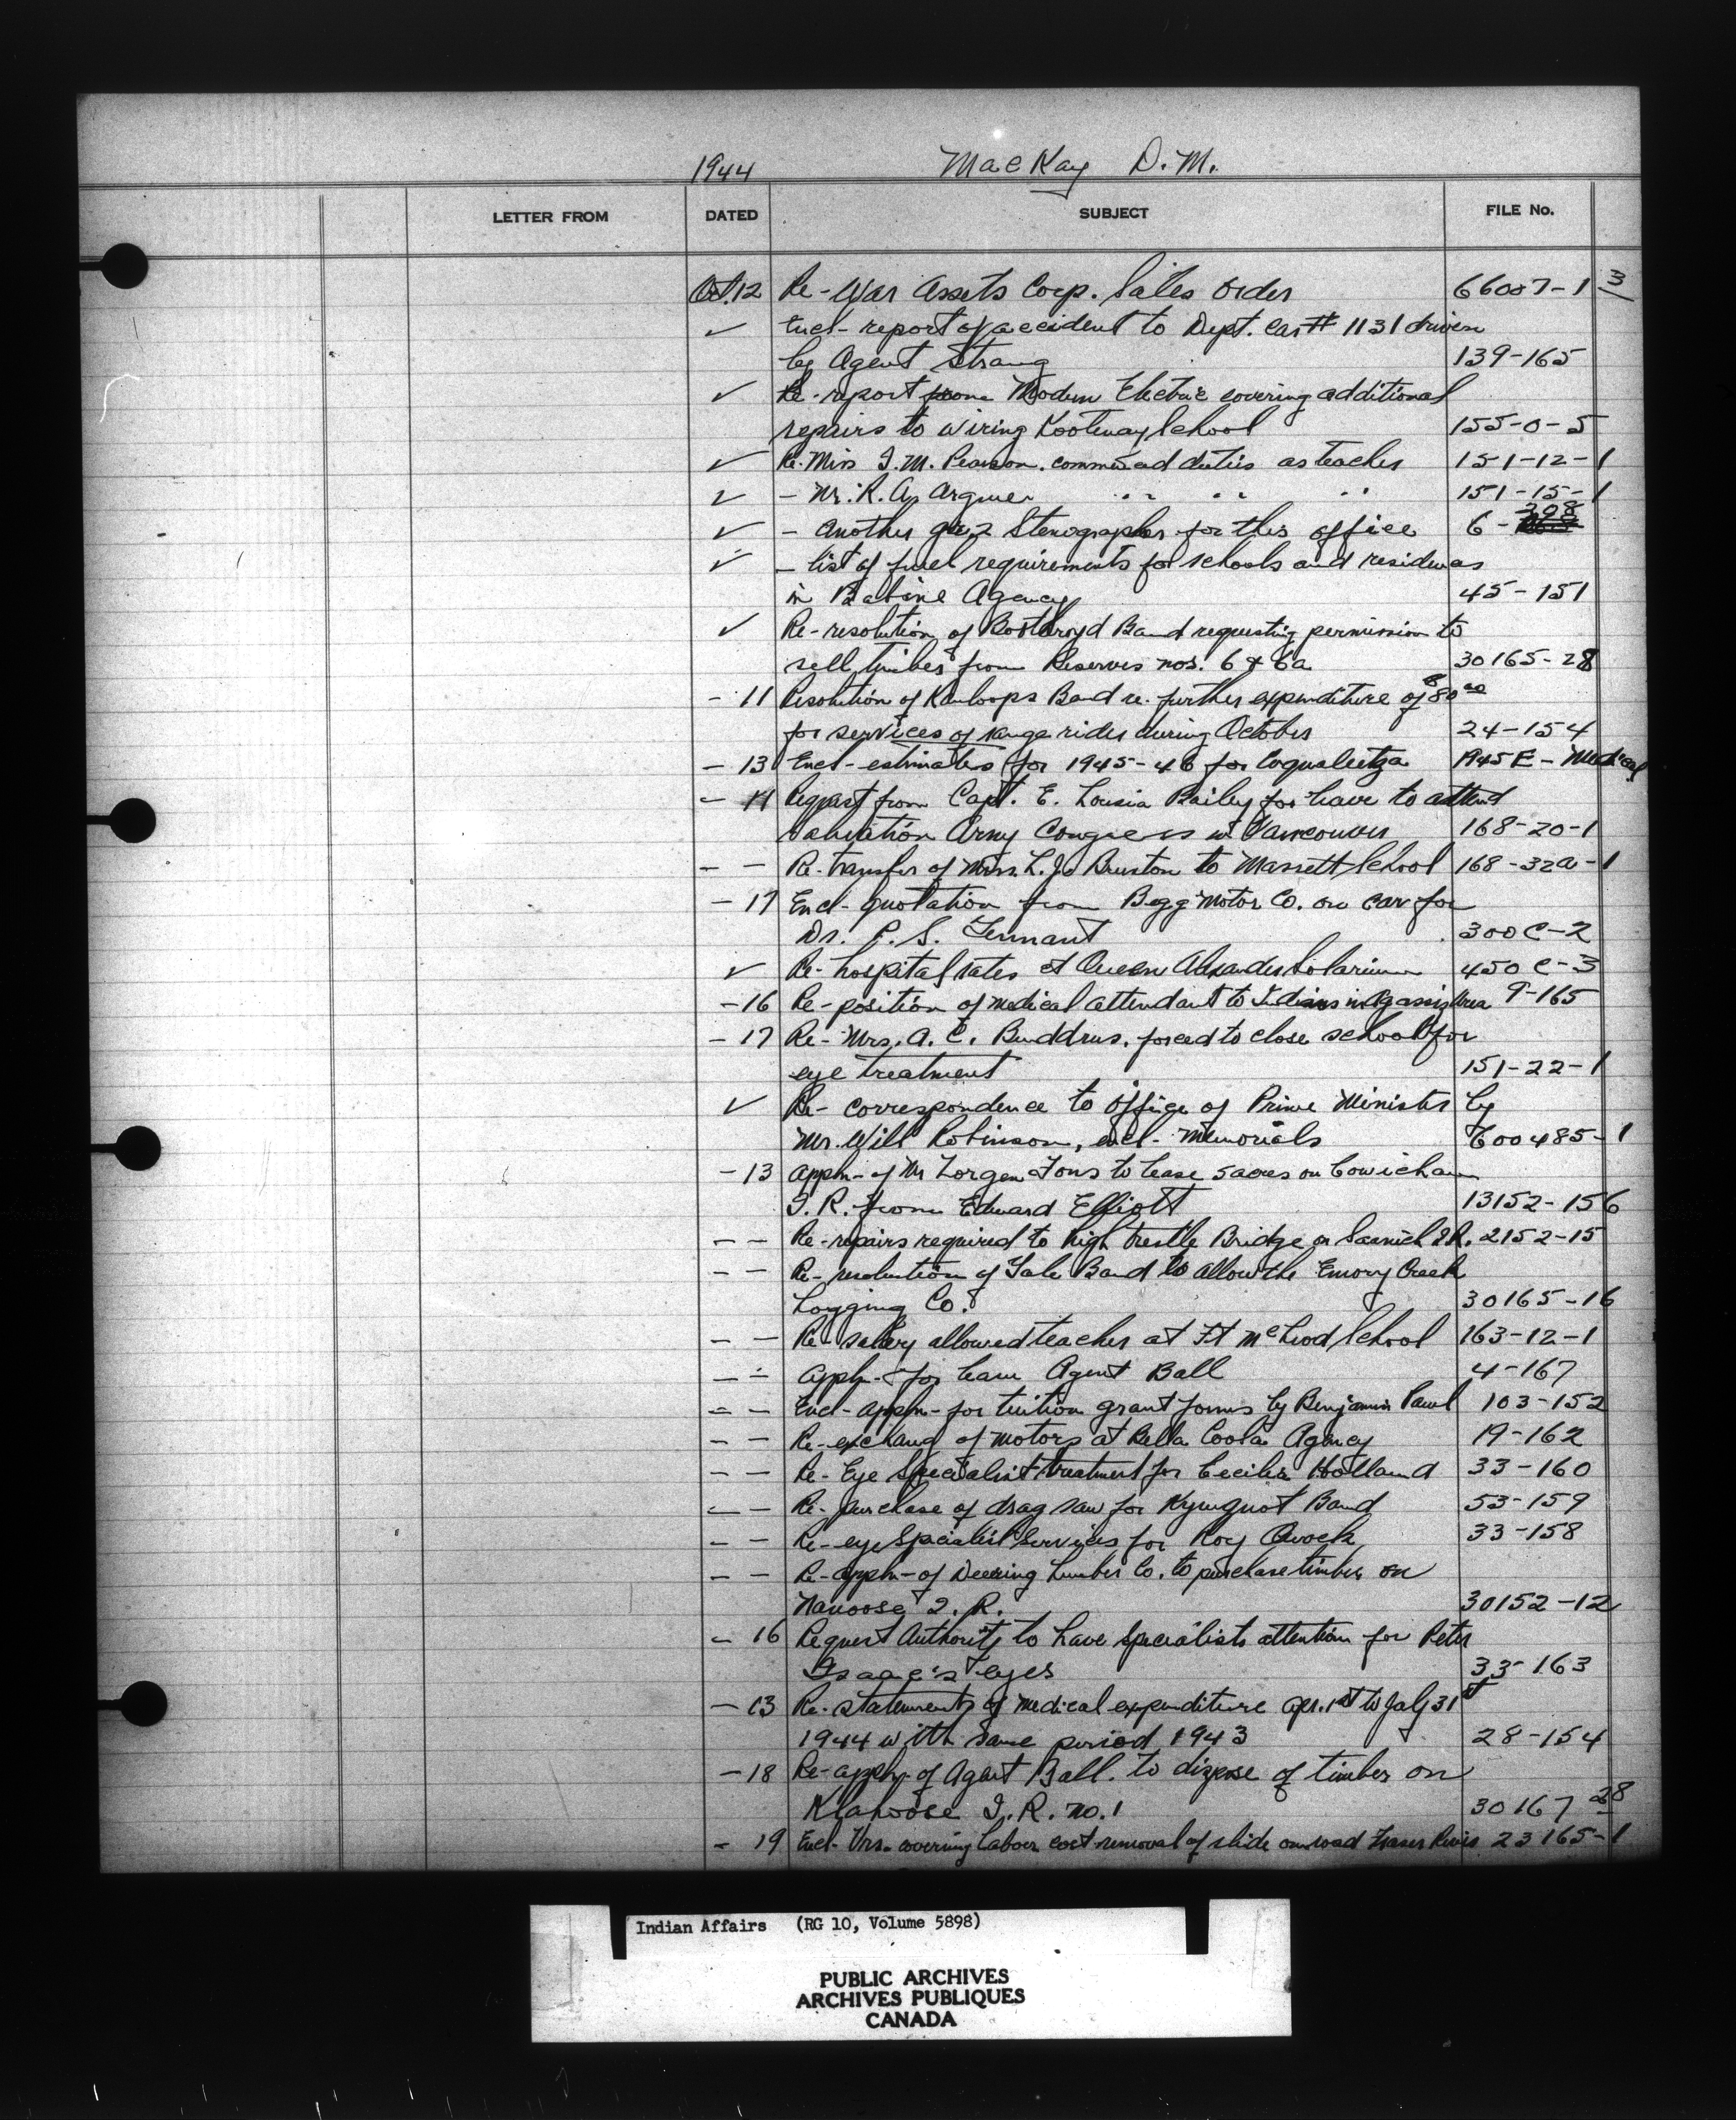 1944 MacKay D.M.
LETTER FROM DATED SUBJECT FILE No.
Oct. 12 Re- War Assets Corp. Sales Order 66007-1-3
✓ Encl- report of accident to Dept. car # 1131 driven
by Agent Strang 139-165
✓ Re- report from Modern Electric covering additional
repairs to wiring Kootenay School 155-0-5
✓ Re- Miss I. M. Pearson. commenced duties as teacher 151-12-1
✓ - Mr. R. A. " " " 151-15-1
✓ - Another gr. 2 Stenographer for this office 6-208
✓ - list of fuel requirements for schools and residences
in Babine Agency 45-151
✓ Re- resolution of Boothroyd Band requesting permission to
sell timber from Reserves nos. 6 & 6a 30165-28
- 11 Resolution of Kamloops Band re. further expenditure of $80.00
for services of range rider during October 24-154
- 13 Encl- estimates for 1945-46 for Coqualeetza 1945E-Medical
- 14 Request from Capt. E. Lousia Bailey for leave to attend
Salvation Army Congress in Vancouver 168-20-1
- - Re- transfer of Mrs. L. J. Bruston to Massett School 168-32a-1
- 17 Encl- quotation from Begg Motor Co. on car for
Dr. P. S. Tennant 300C-2
✓ Re- hospital rates at Queen Alexander Solarium 450C-3
- 16 Re- position of medical attendant to Indians in Agassiz Area 9-165
- 17 Re- Mrs. A. C. Buddrus. forced to close school for
eye treatment 151-22-1
✓ Re- correspondence to office of Prime Minister by
Mr. Will Robinson, encl- memorials 600485-1
- 13 Appln- of Mr to lease 5 acres on Cowichan
I. R. from Edward Elliott 13152-156
- - Re- repairs required to high trestle Bridge on Saanich I.R. 2152-15
- - Re- resolution of Yale Band to allow the Emory Creek
Logging Co. 30165-16
- - Re- salary allowed teacher at Ft McLeod School 163-12-1
- - Appln- for leave Agent Ball 4-167
- - Encl- appln- for tuition grant forms by Benjamin Paul 103-152
- - Re- exchang of motors at Bella Coola Agency 19-162
- - Re- Eye Specialist treatment for Cecilia Holland 33-160
- - Re- purchase of drag saw for Kyuquot Band 53-159
- - Re- eye Specialist Services for Roy 33-158
- - Re- appln- of Deering Lumber Co. to purchase timber on
Nanoose I. R. 30152-12
- 16 Request Authority to have specialists attention for Peter
Isaac's eyes 33-163
- 13 Re- statements of medical expenditure Apr. 1st to July 31st
1944 with same period 1943 28-154
- 18 Re- appln- of Agent Ball. to dispose of timber on
Klahoose I. R. no. 1 30167-28
- 19 Encl- Vrs- covering labour cost removal of slide on road Fraser River 23165-1
Indian Affairs (RG 10, Volume 5898)
PUBLIC ARCHIVES
ARCHIVES PUBLIQUES
CANADA